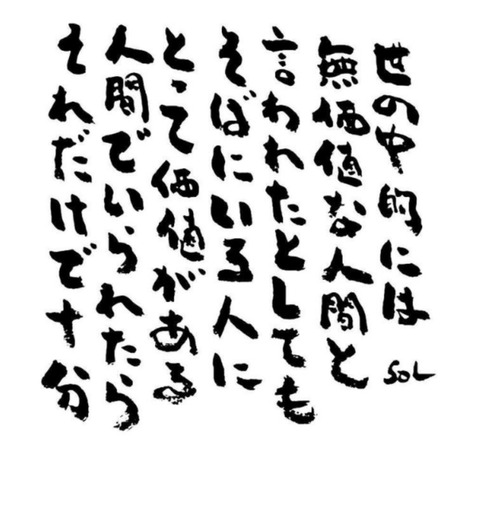 世の中的には
無価値な人間と
言われたとしても
そばにいる人に
とって価値がある
人間でいられたら
それだけで十分
SOL